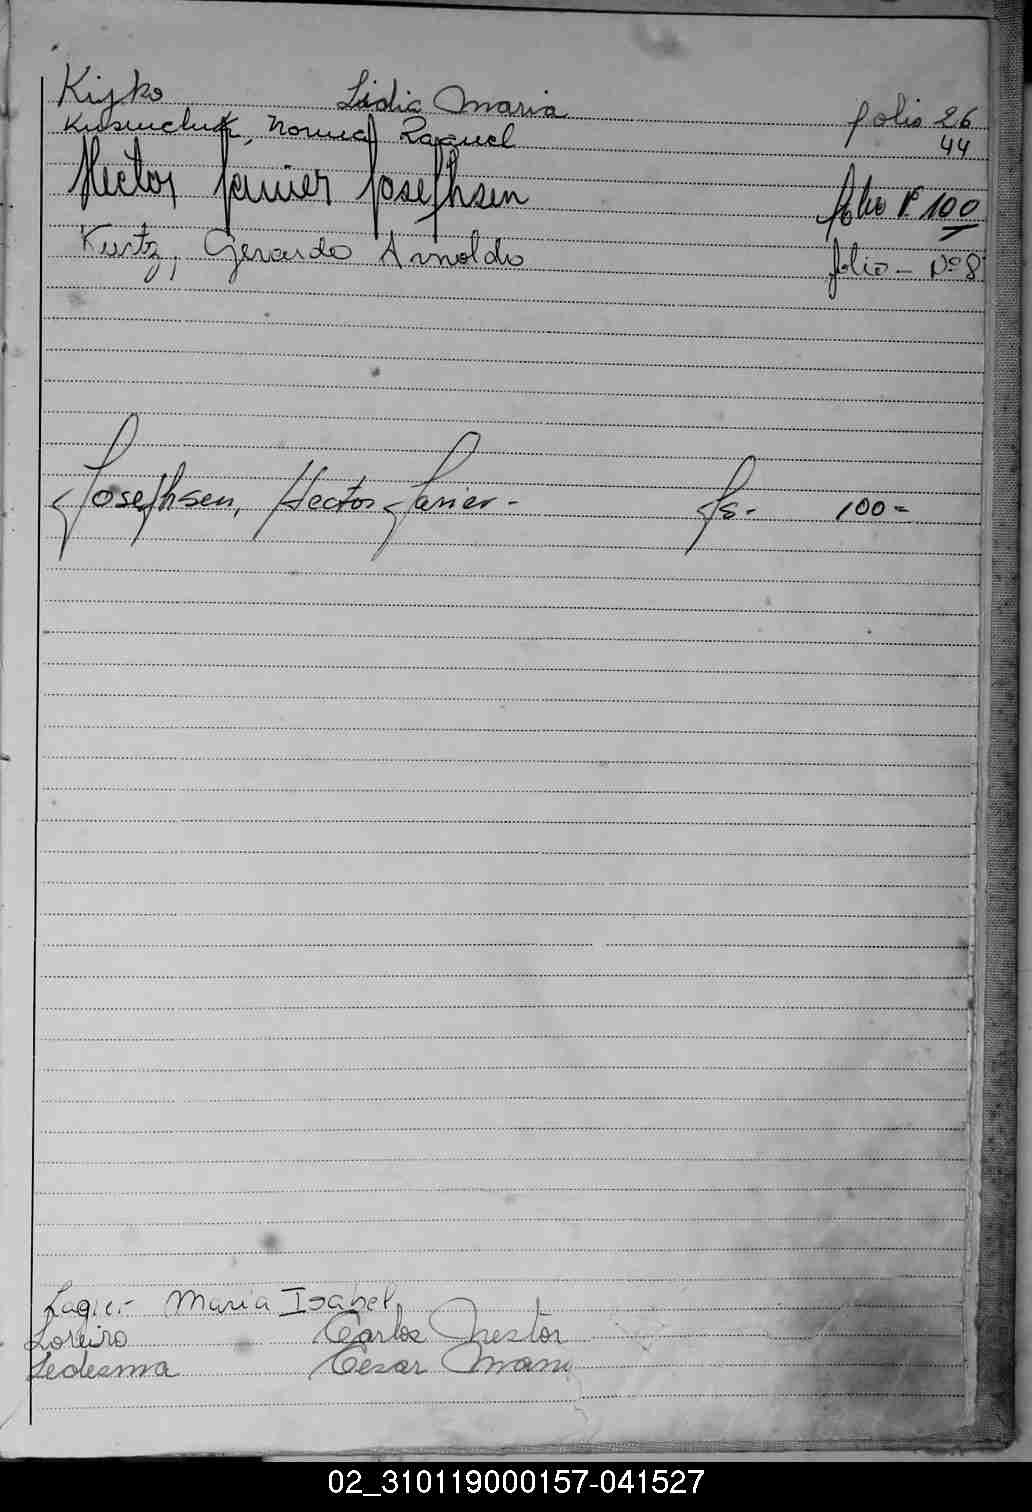 Kijko Lidia Maria folio 26
Norma Raquel 44
Hector Javier Josephsen folio Nº 100
Kurtz, Gerardo Arnoldo folio - Nº 8
Josephsen, Hector Javier - fs. 100 =
Lagier Maria Isabel
Loreiro Carlos Nestor
Ledesma Cesar
02_310119000157-041527